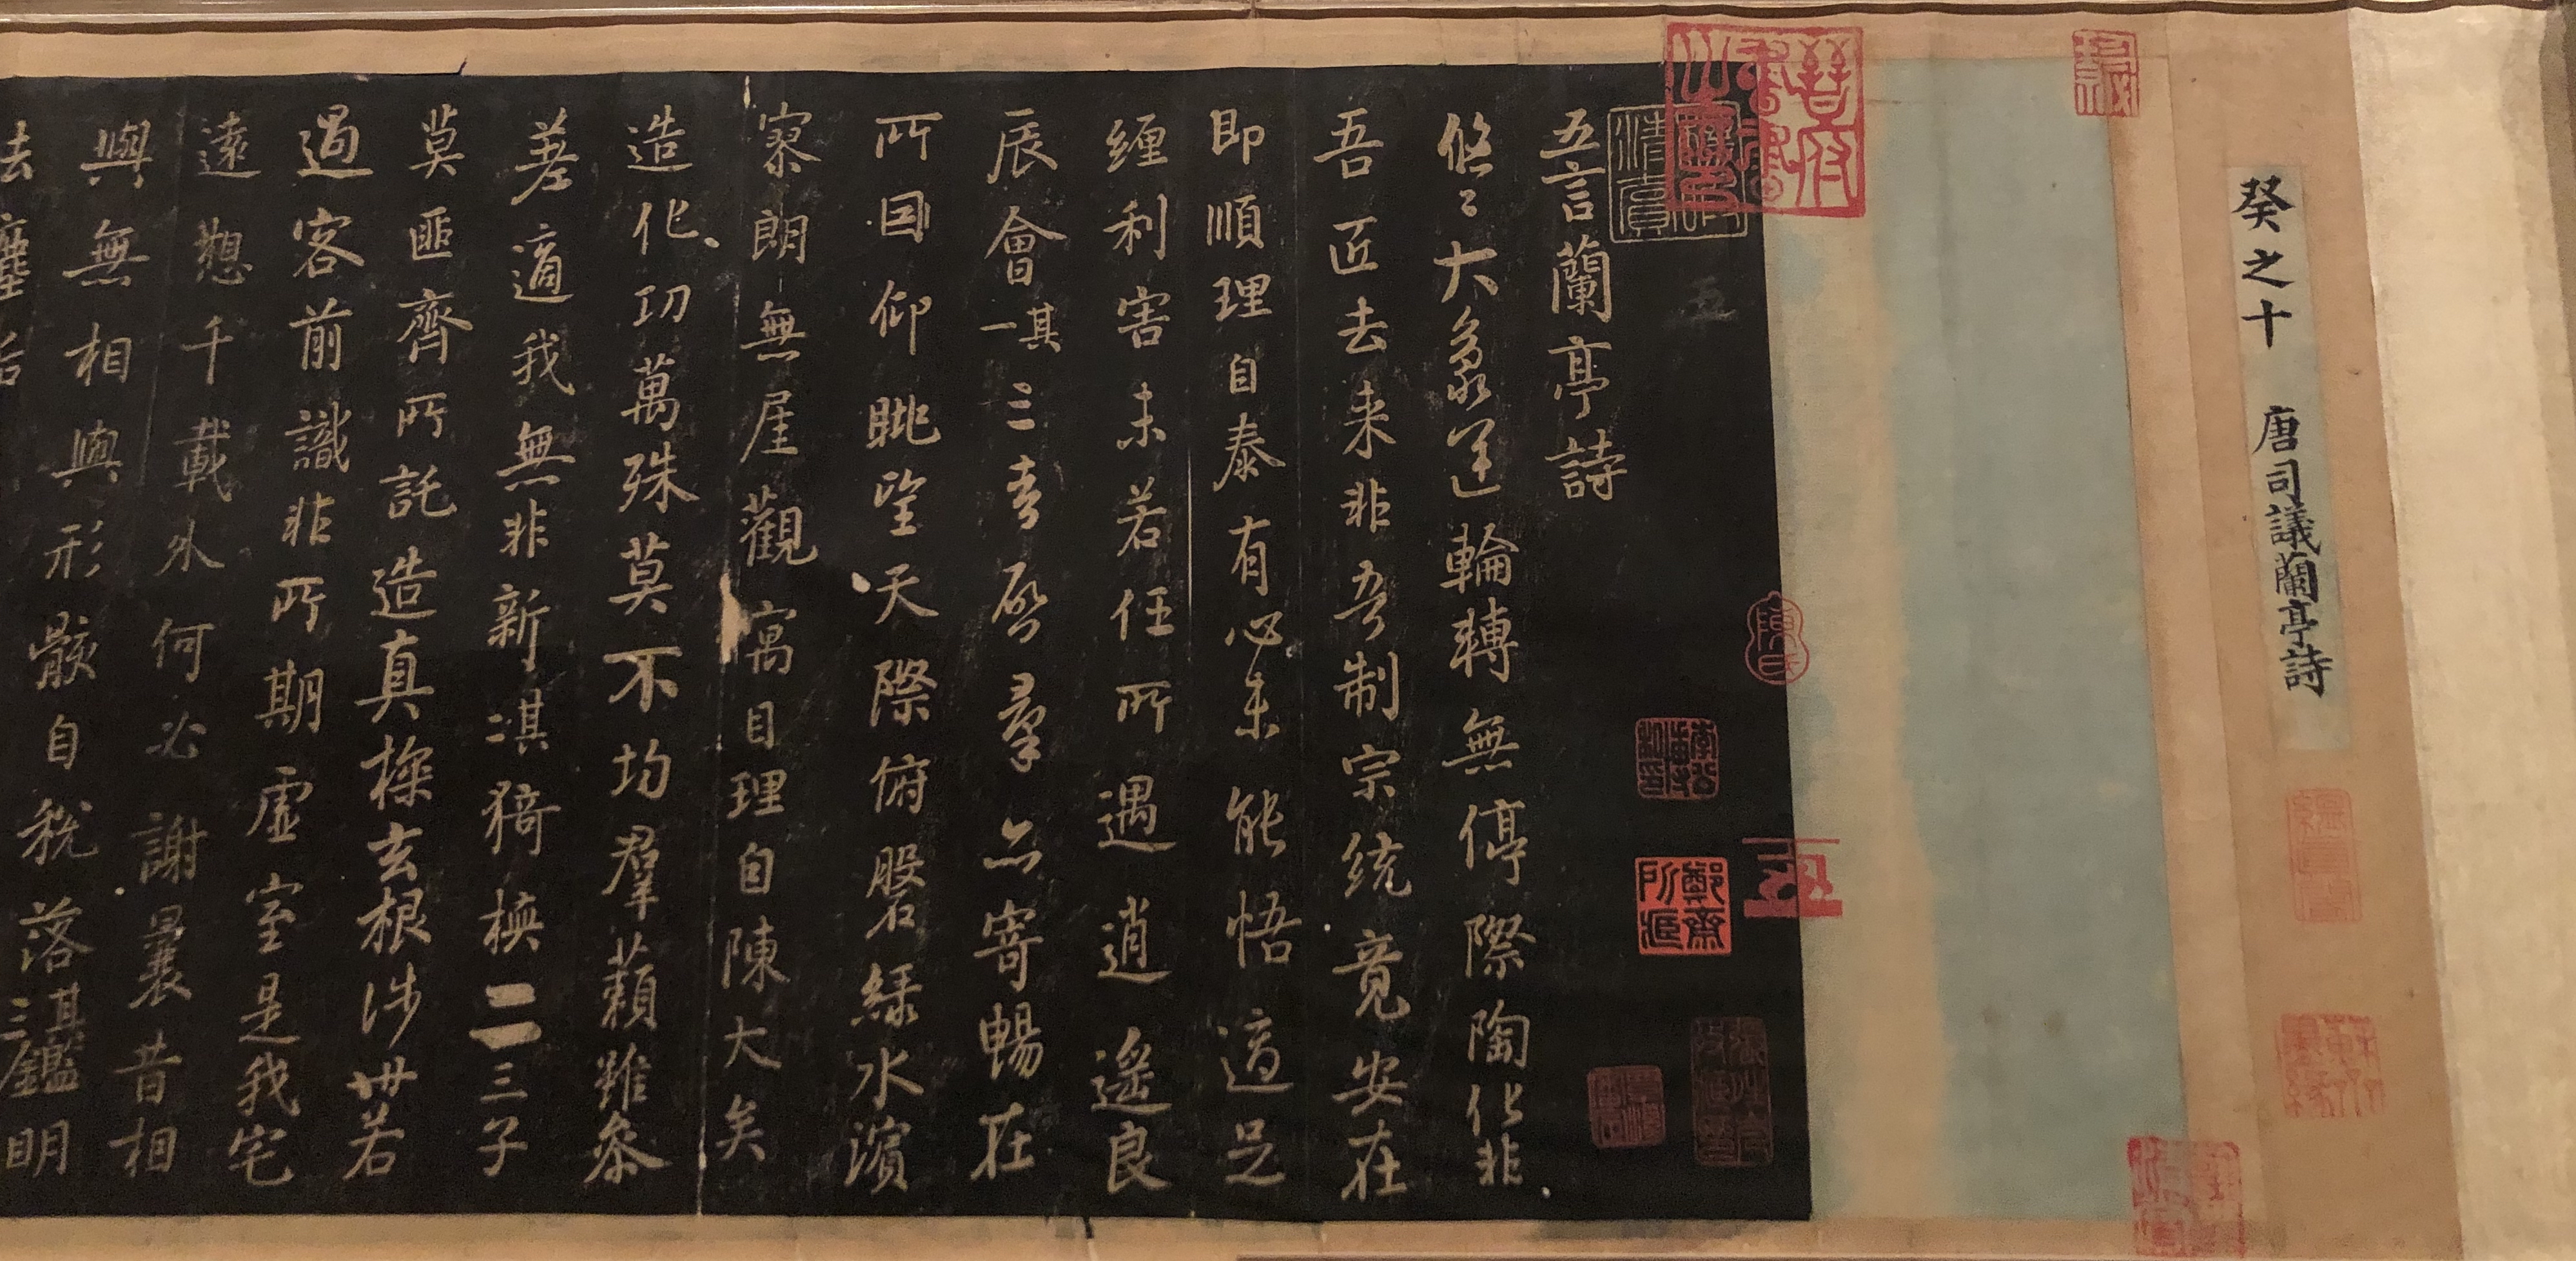 癸之十 唐司議蘭亭詩
五言蘭亭詩
悠〻大象運輪轉無停際陶化非
吾匠去来非吾制宗統竟安在
即順理自泰有心未能悟適足
纏利害未若任所遇逍遥良
辰會其一三春啓羣品寄暢在
所因仰眺望天際俯磐緑水濱
寥朗無厓觀寓目理自陳大矣
造化功萬殊莫不均羣藾雖叅
差適我無非新其二猗㰵二三子
莫匪齊所託造真探玄根涉世若
過客前識非所期虚室是我宅
遠想千載外何必謝曩昔相
與無相與形骸自脱落其三鑑明
去塵垢
陳氏
鄭齋所藏
晉府書畫之印